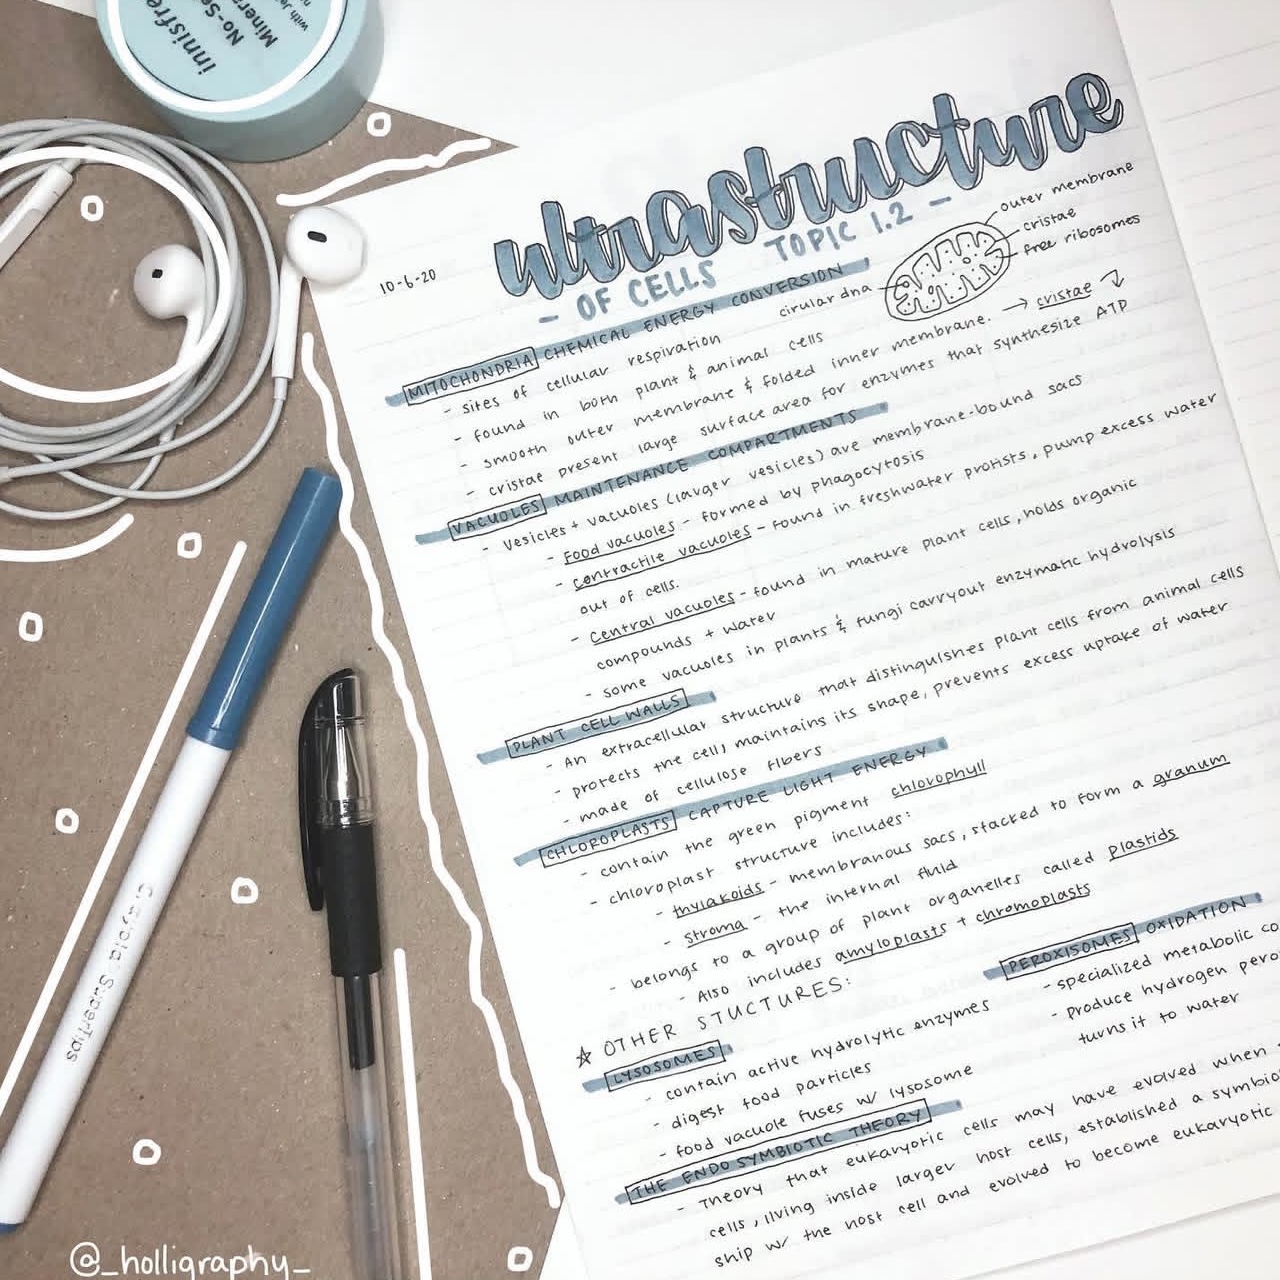 innisfree
No-Se
Minera
with Je
ultrastructure
- OF CELLS TOPIC 1.2 -
10-6-20
outer membrane
cristae
free ribosomes
cirular dna
MITOCHONDRIA CHEMICAL ENERGY CONVERSION
- sites of cellular respiration
- found in both plant & animal cells
- smooth outer membrane & folded inner membrane. → cristae
- cristae present large surface area for enzymes that synthesize ATP
VACUOLES MAINTENANCE COMPARTMENTS
- vesicles + vacuoles (larger vesicles) are membrane-bound sacs
- Food vacuoles - formed by phagocytosis
- contractile vacuoles - found in freshwater protists, pump excess water
out of cells.
- Central vacuoles - found in mature plant cells, holds organic
compounds + water
- some vacuoles in plants & fungi carryout enzymatic hydrolysis
PLANT CELL WALLS
- An extracellular structure that distinguishes plant cells from animal cells
- protects the cell, maintains its shape, prevents excess uptake of water
- made of cellulose fibers
CHLOROPLASTS CAPTURE LIGHT ENERGY
- contain the green pigment chlorophyll
- chloroplast structure includes:
- thylakoids - membranous sacs, stacked to form a granum
- stroma - the internal fluid
- belongs to a group of plant organelles called plastids
- Also includes amyloplasts + chromoplasts
☆ OTHER STUCTURES:
LYSOSOMES
- contain active hydrolytic enzymes
- digest food particles
- food vacuole fuses w/ lysosome
PEROXISOMES OXIDATION
- specialized metabolic co
- produce hydrogen pero
turns it to water
THE ENDOSYMBIOTIC THEORY
- Theory that eukaryotic cells may have evolved when
cells, living inside larger host cells, established a symbio
ship w/ the host cell and evolved to become eukaryotic
Crayola SuperTips
@_holligraphy_